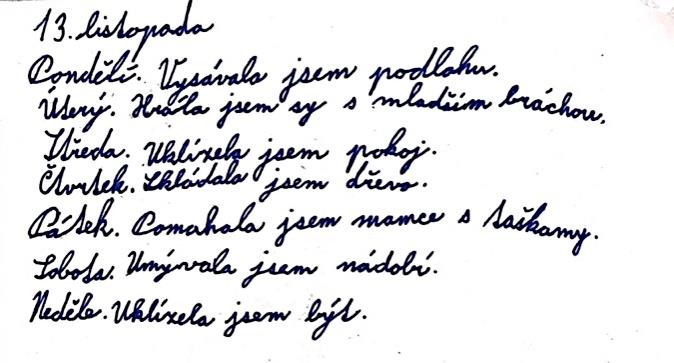 13. listopada
Pondělí. Vysávala jsem podlahu.
Úterý. Hrála jsem sy s mladším bráchou.
Středa. Uklízela jsem pokoj.
Čtvrtek. Skládala jsem dřevo.
Pátek. Pomahala jsem mamce s taškamy.
Sobota. Umývala jsem nádobí.
Neděle. Uklízela jsem být.